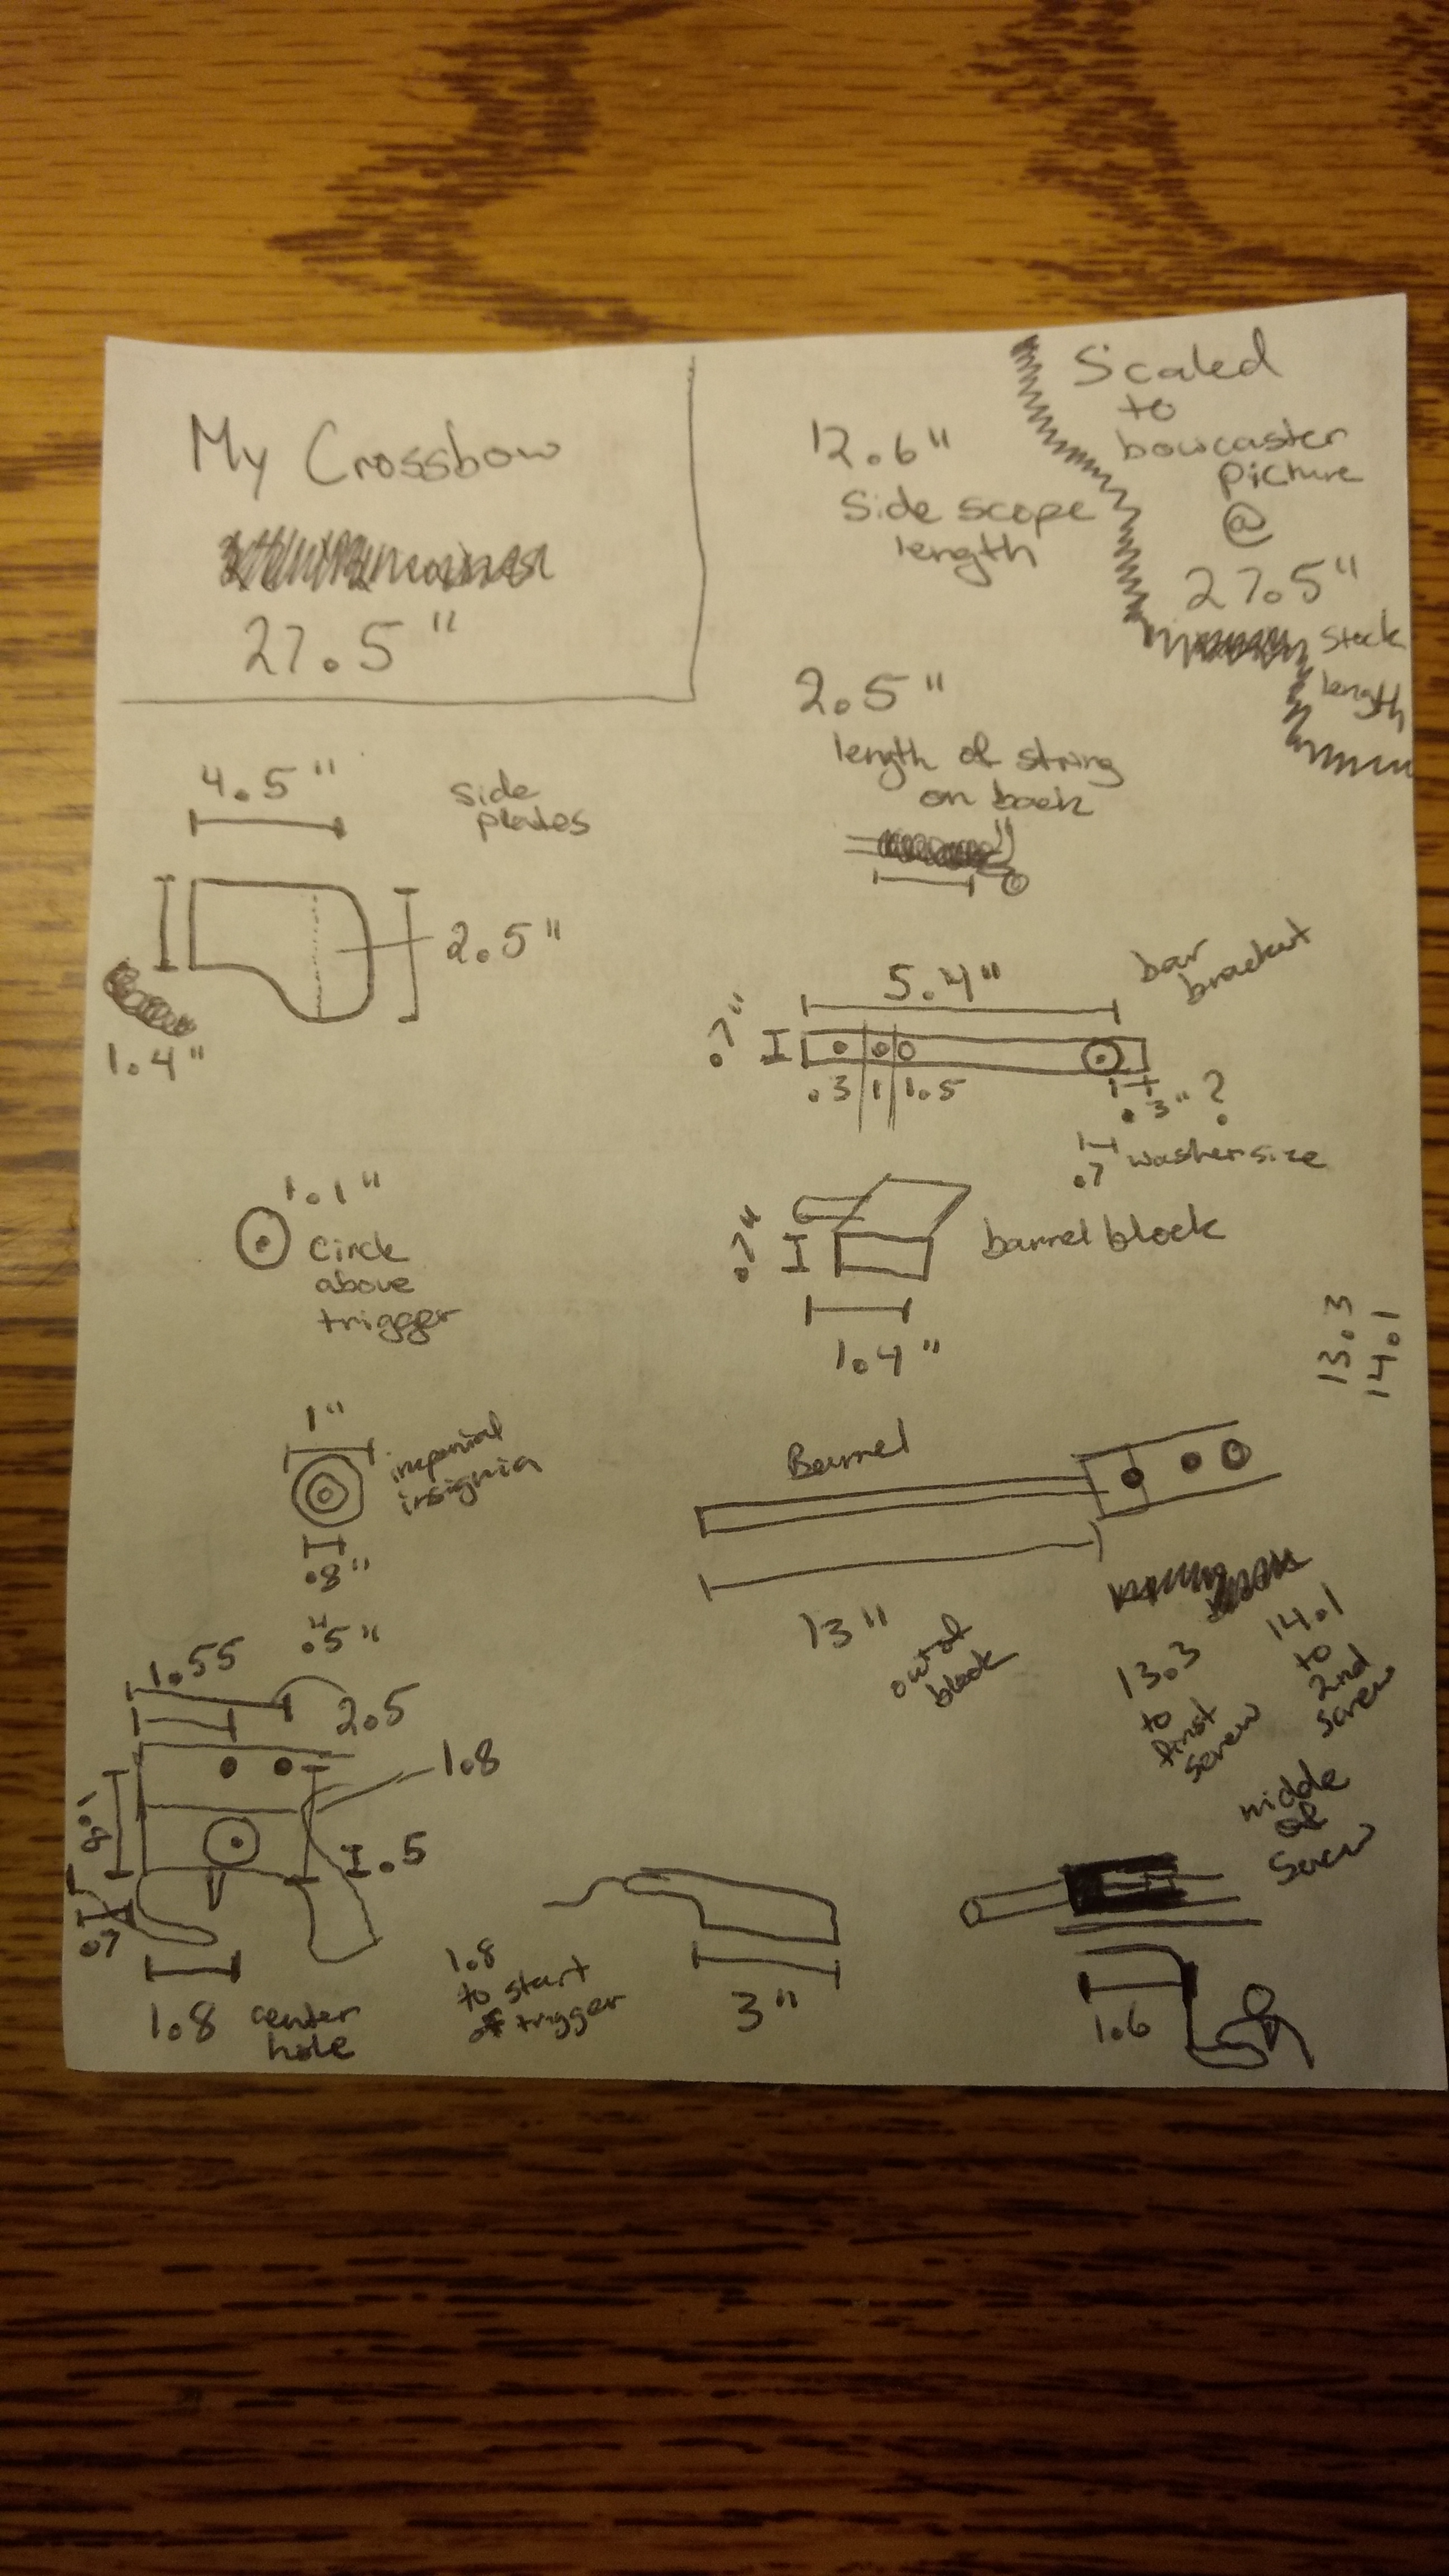 My Crossbow
27.5"
12.6"
Side scope
length
Scaled
to
bowcaster
picture
@
27.5"
stock
length
2.5"
length of string
on back
4.5"
side
plates
2.5"
1.4"
5.4"
bar
bracket
.7"
.3 1 1.5
.3"?
.7 washer size
1.1"
circle
above
trigger
.7"
barrel block
1.4"
13.3
14.1
1"
imperial
insignia
.8"
Barrel
13"
out of
block
13.3
to
first
screw
14.1
to
2nd
screw
middle
of
screw
.5"
1.55
2.5
1.8
1.8
.5
.7
1.8 center
hole
1.8
to start
of trigger
3"
1.6